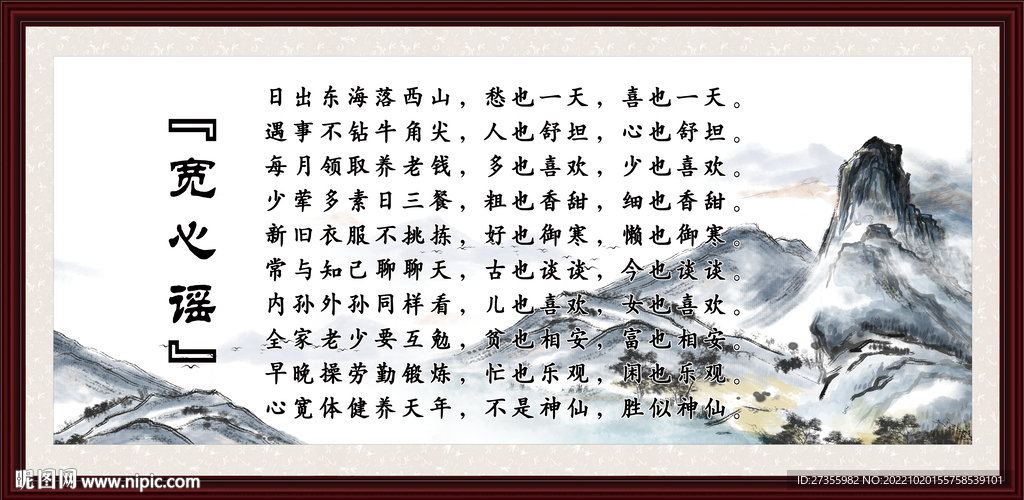 『宽心谣』
日出东海落西山，愁也一天，喜也一天。
遇事不钻牛角尖，人也舒坦，心也舒坦。
每月领取养老钱，多也喜欢，少也喜欢。
少荤多素日三餐，粗也香甜，细也香甜。
新旧衣服不挑拣，好也御寒，懒也御寒。
常与知己聊聊天，古也谈谈，今也谈谈。
内孙外孙同样看，儿也喜欢，女也喜欢。
全家老少要互勉，贫也相安，富也相安。
早晚操劳勤锻炼，忙也乐观，闲也乐观。
心宽体健养天年，不是神仙，胜似神仙。
昵图网 www.nipic.com
ID:27355982 NO:20221020155758539101